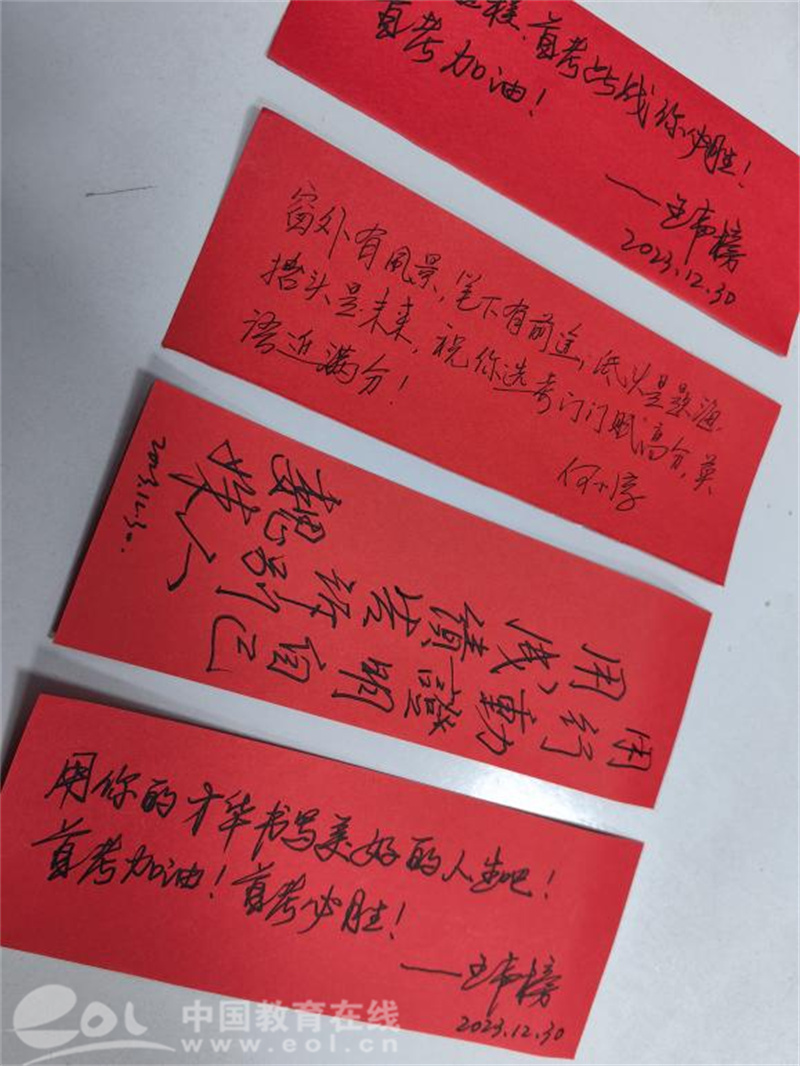 程,首考此战你必胜!
首考加油!
2023.12.30
窗外有风景,笔下有前途,低头是题海,
抬头是未来,祝你选考门门赋高分,英
语近满分!
用行動證明自己
用成績告诉别人
2023.12.30.
用你的才华书写美好的人生吧!
首考加油!首考必胜!
2023.12.30
eol 中国教育在线
www.eol.cn